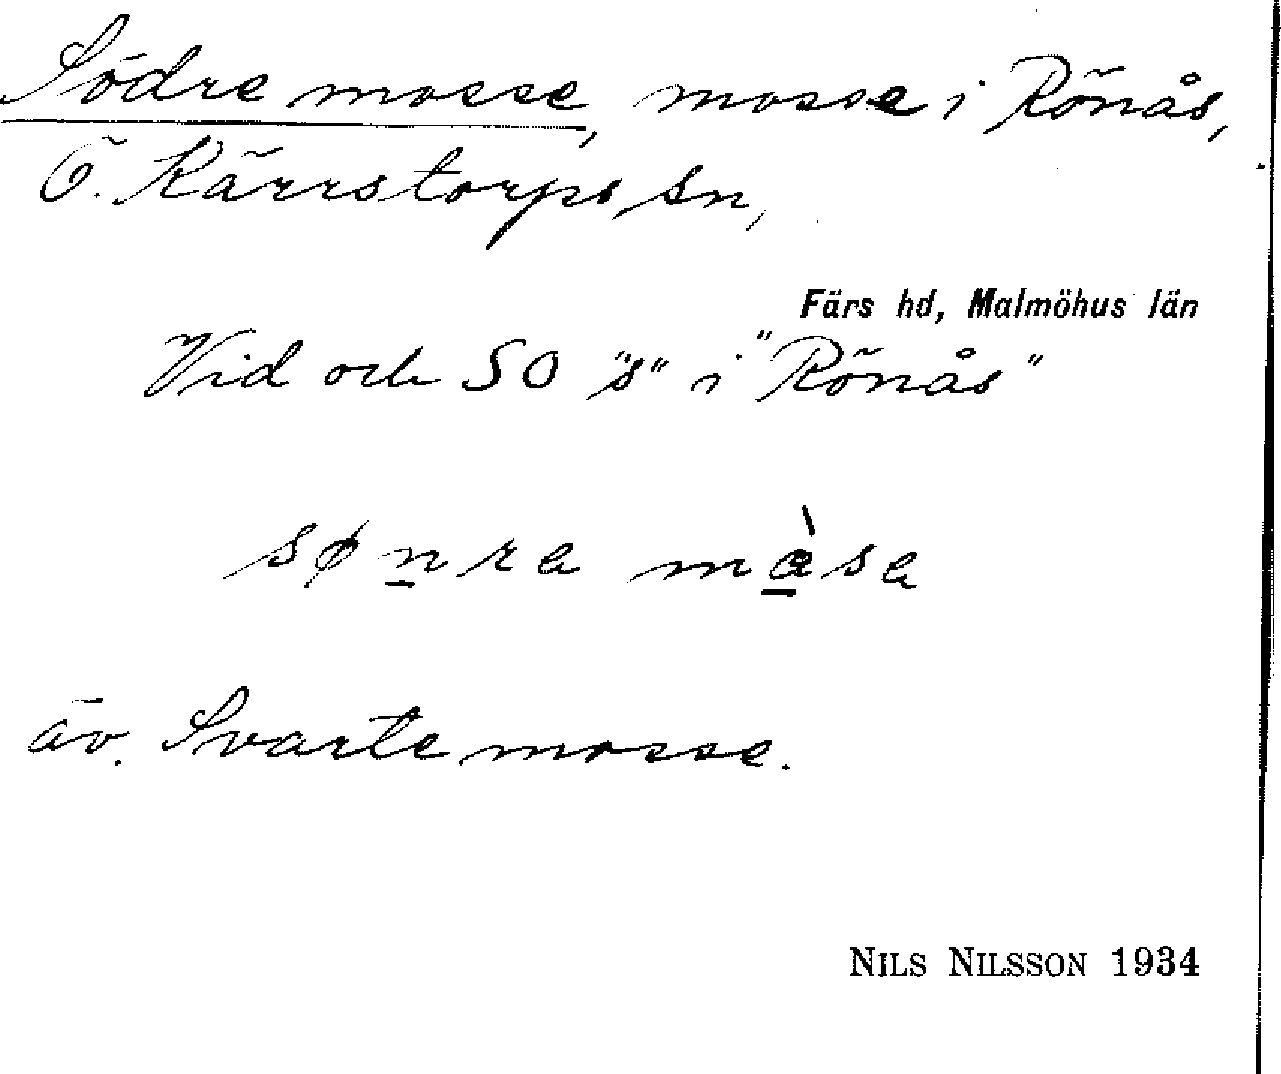 Södre mosse, mosse i Rönås,
Ö. Kärrstorps sn,
Färs hd, Malmöhus län
Vid och SO "s" i "Rönås"
søn̲ra mà̲sa
äv. Svarte mosse.
NILS NILSSON 1934